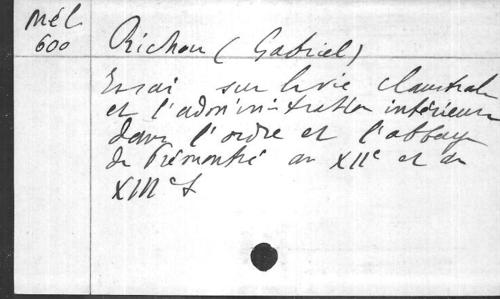 Mél
600
Richou (Gabriel)
Essai sur la vie claustrale
et l'administration intérieure
dans l'ordre et l'abbaye
de Prémontré au XIIe et au
XIIIe s